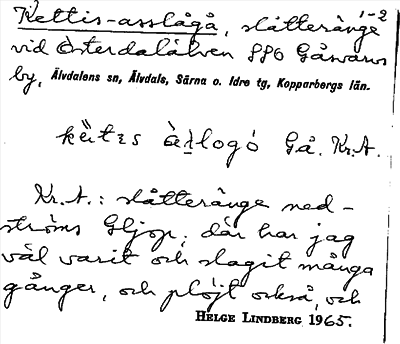 Kettis-asslågå, slåtteränge 1-2
vid Österdalälven SSO Åsens
by, Älvdalens sn, Älvdals, Särna o. Idre tg, Kopparbergs län.
Gå. Kr.A.
Kr.A.: slåtteränge ned-
ströms Gljop, där har jag
väl varit och slagit många
gånger, och plöjt också, och
HELGE LINDBERG 1965.